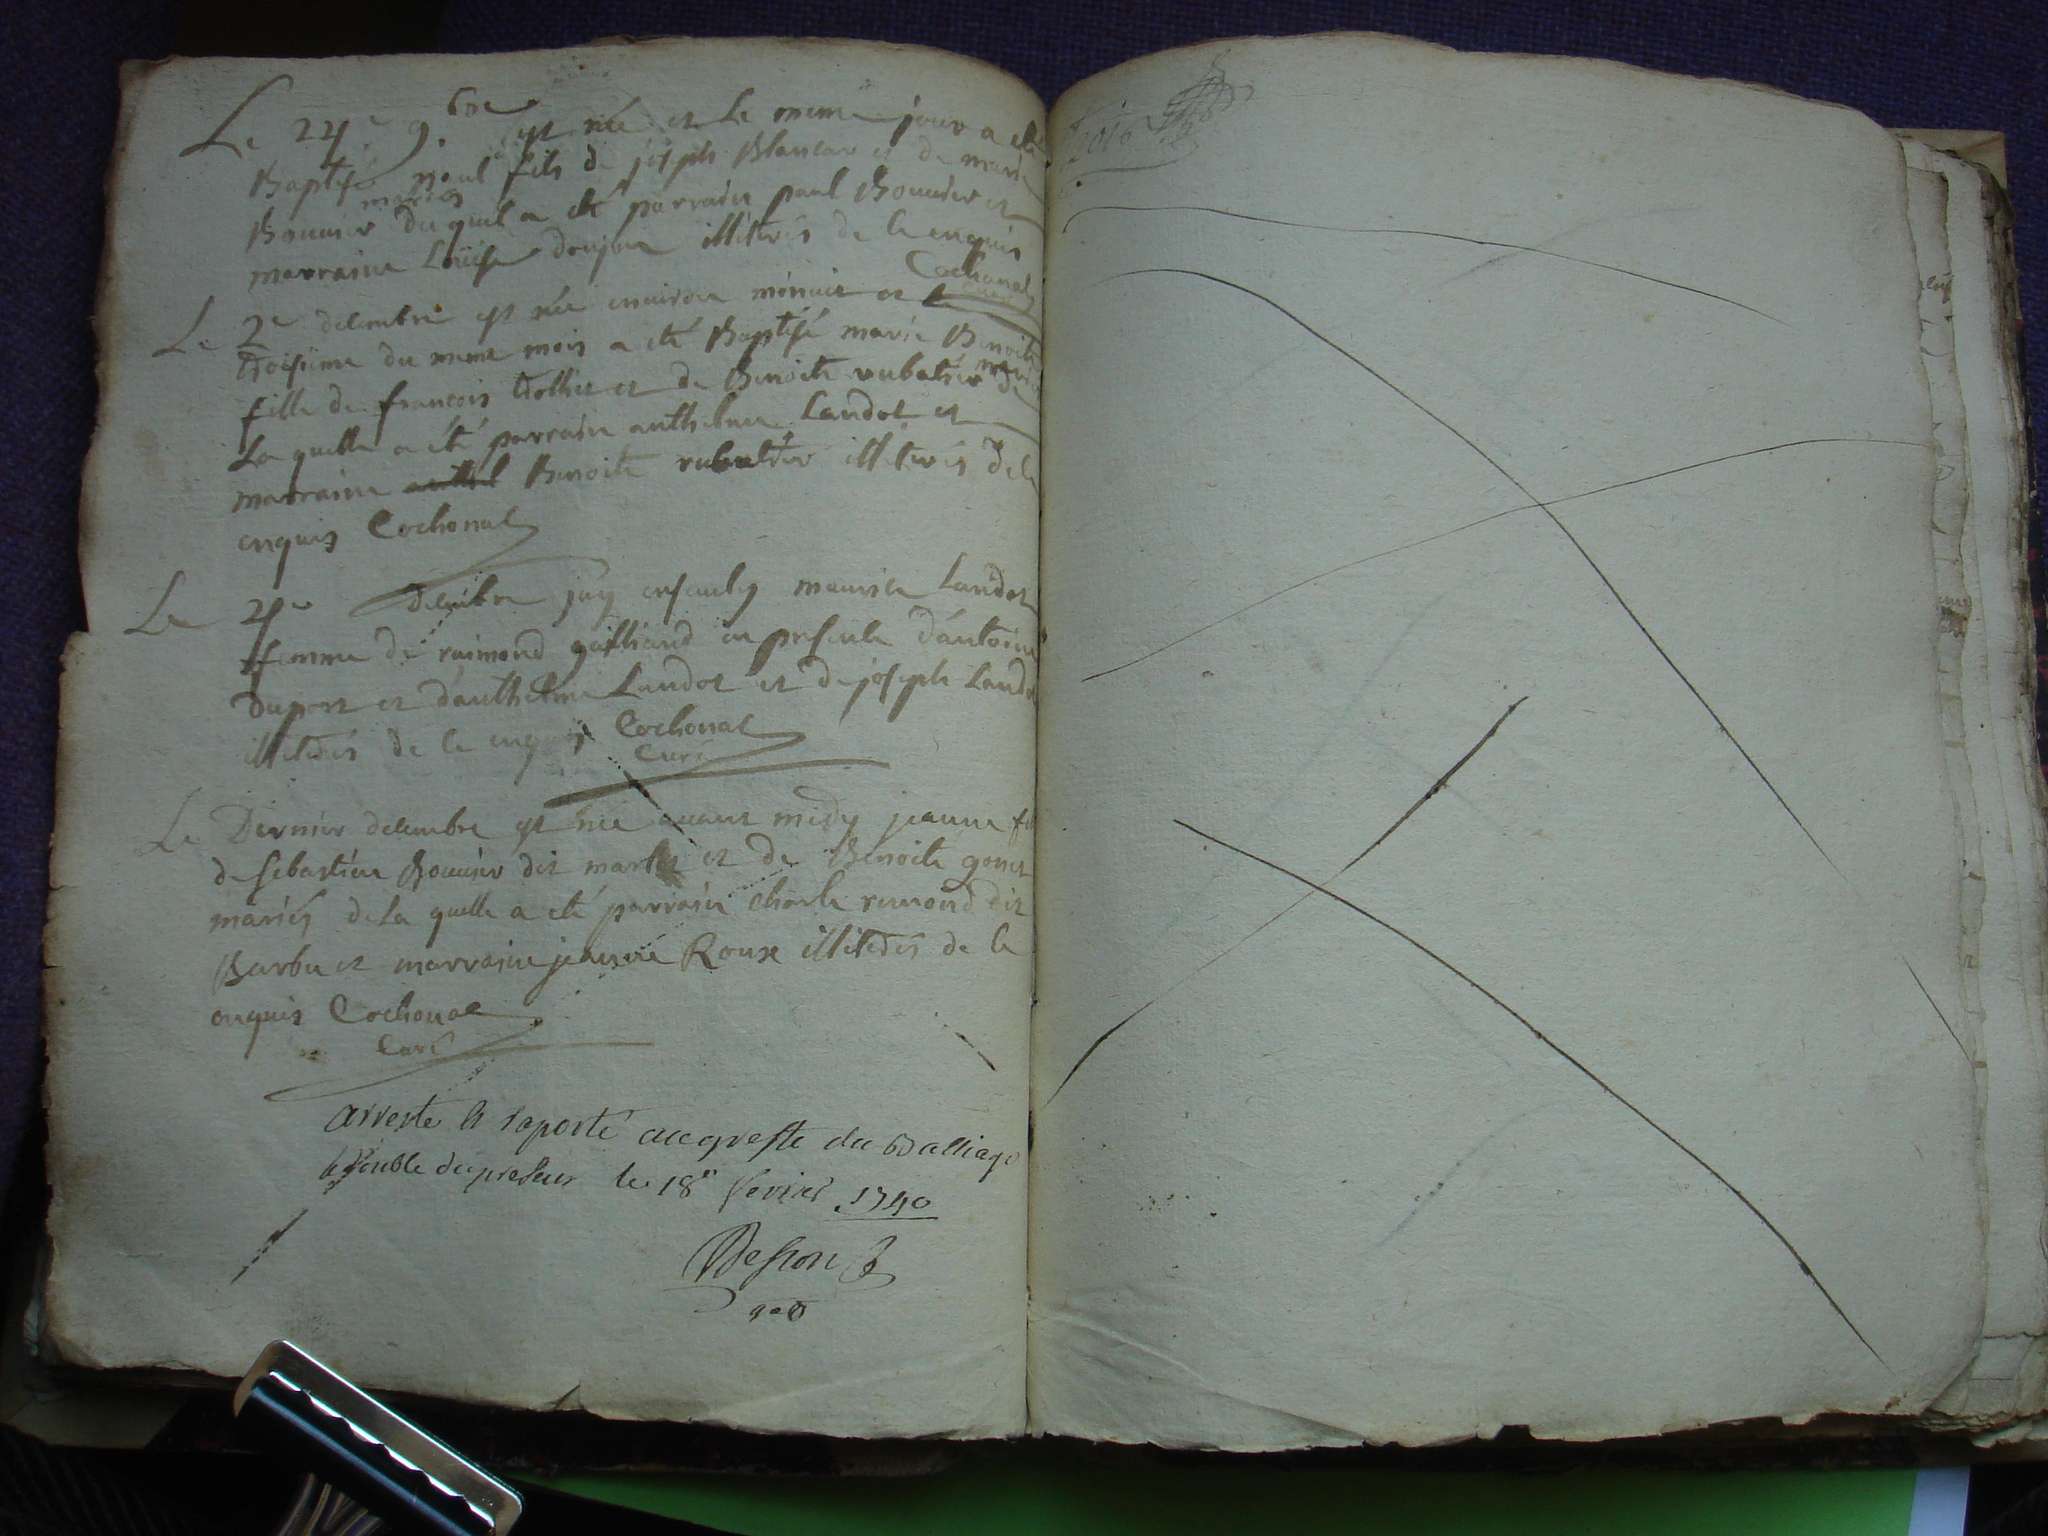 Le 24e 9.bre est née et le meme jour a eté
Baptisé paul fils de joseph Blancar et de marie
mariés
Bouvier du quel a eté parrain paul Bouvier et
marraine Loüise illiterés de ce enquis
Cochonat
Le 2e decembre est née environ minuit et le
troisieme du meme mois a eté Baptisé marie Benoite
fille de francois trollier et de Benoite rubatier mariés de
La quelle a eté parrain anthelme Landot et
marraine Benoite rubatier illiterés de ce
enquis Cochonat
Le 4e decembre j'ay ensevely Landot
femme de raimond galliand en presence d'antoine
Duport et d'anthelme Landot et de joseph Landot
illiterés de ce enquis Cochonat
Curé
Le Dernier decembre est née avant midy jeanne fille
de sebastien Bouvier dit et de Benoite gonet
mariés de La quelle a eté parrain charle remond dit
Barbu et marraine jeanne Roux illiterés de ce
enquis Cochonat
Curé
arresté et raporté au greffe du Balliage
le double du presens le 18e fevrier 1740